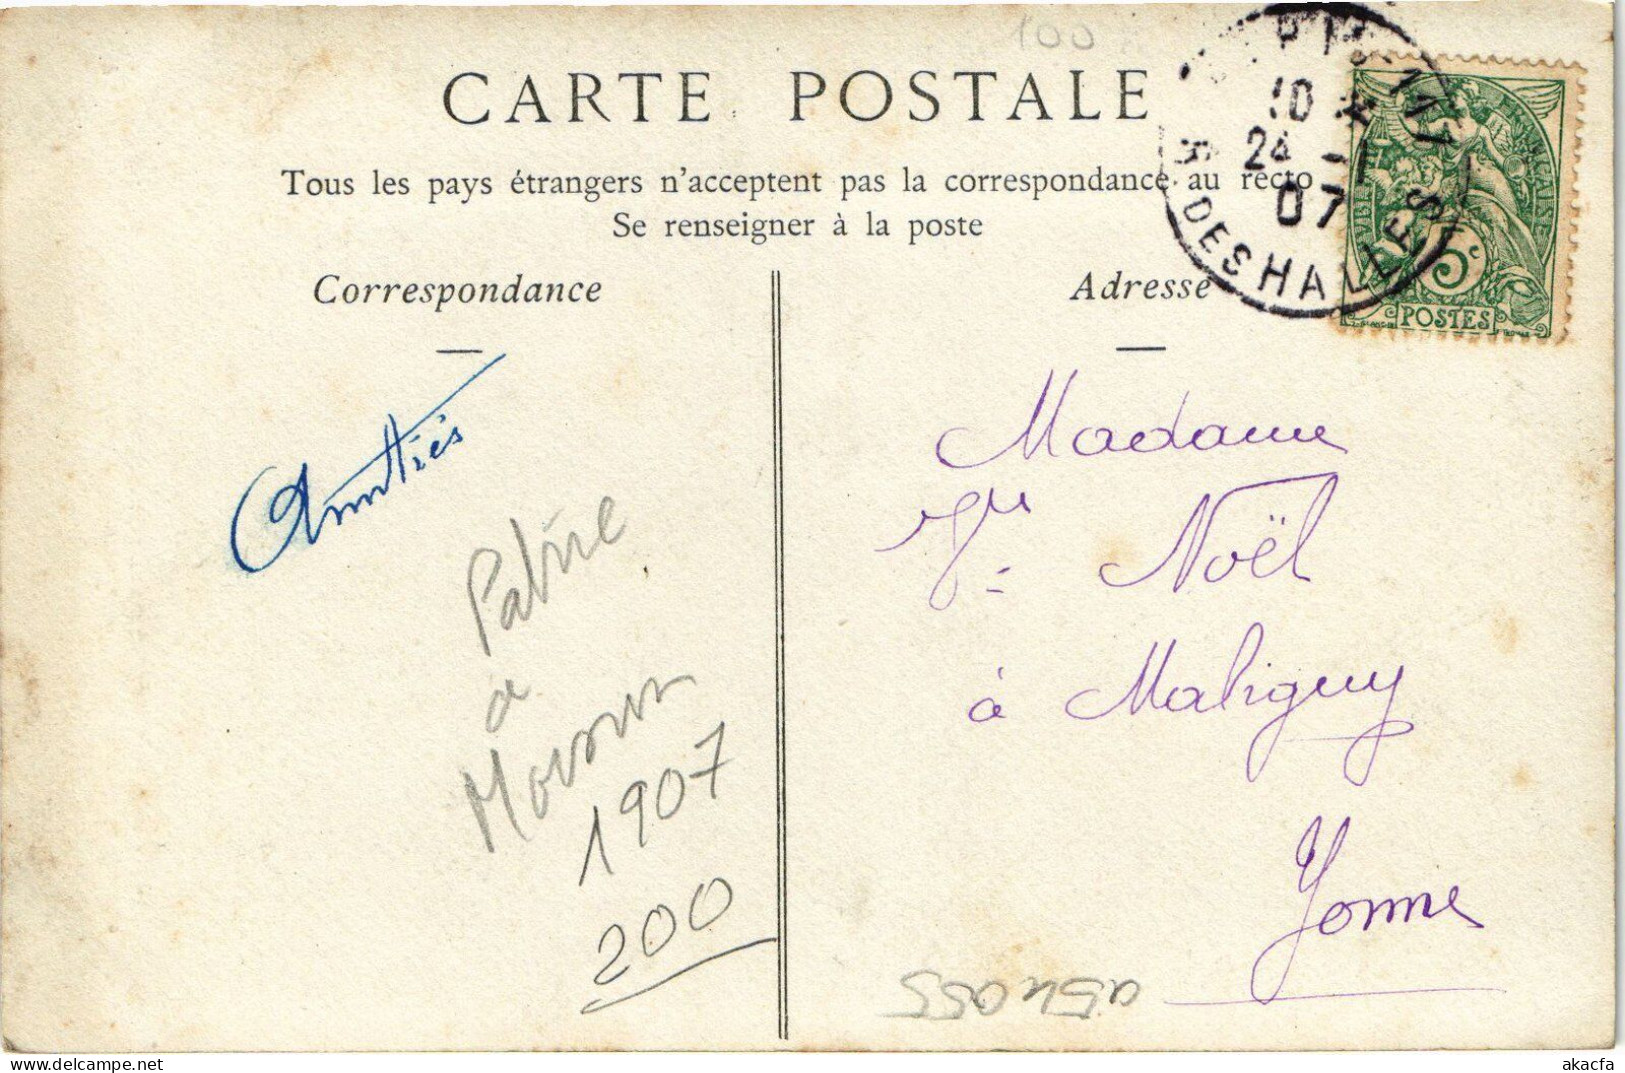 100
CARTE POSTALE
Tous les pays étrangers n'acceptent pas la correspondance au recto
Se renseigner à la poste
Correspondance
Adresse
10
24 -1
07
R. DES HALLES
FRANÇAISE
5c
POSTES
Amitiés
Madame
Vve Noël
à Maligny
Yonne
a
1907
200
a54055
akacfa